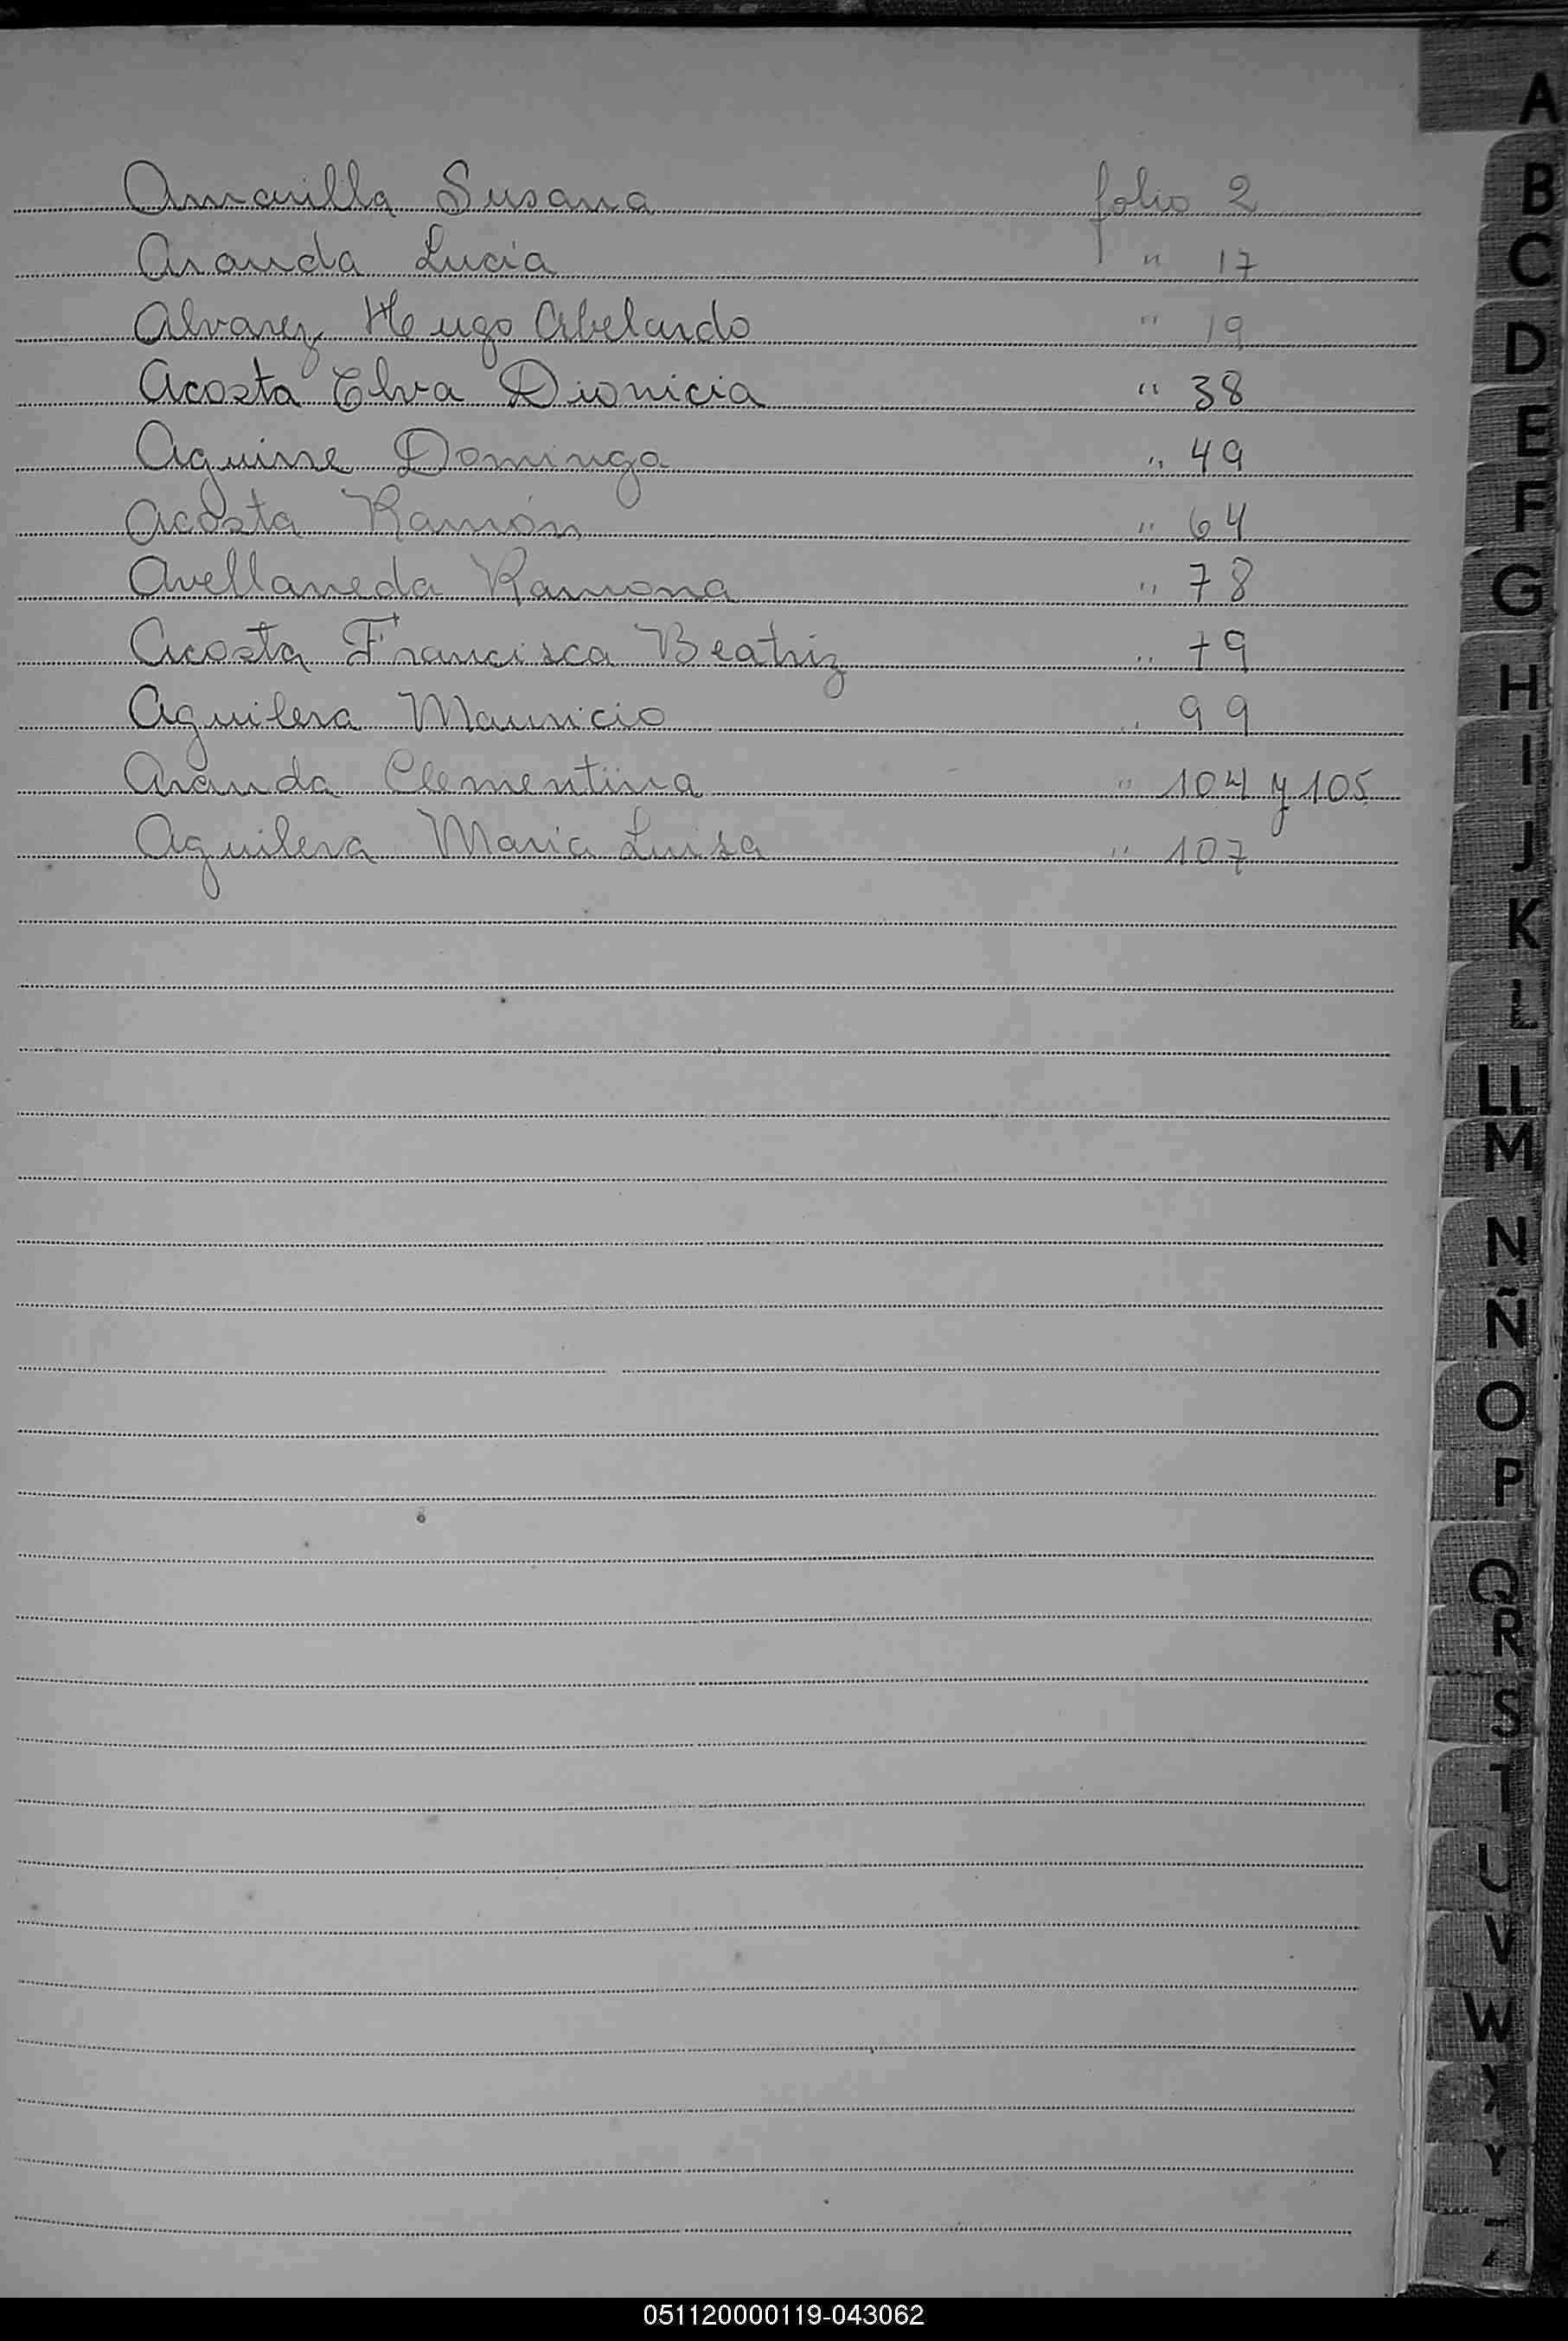 Amarilla Susana folio 2
Aranda Lucia " 17
Alvarez Hugo Abelardo " 19
Acosta Elva Dionicia " 38
Aguirre Dominga " 49
Acosta Ramón " 64
Avellaneda Ramona " 78
Acosta Francisca Beatriz " 79
Aguilera Mauricio " 99
Aranda Clementina " 104 y 105
Aguilera Maria Luisa " 107
A
B
C
D
E
F
G
H
I
J
K
L
LL
M
N
Ñ
O
P
Q
R
S
T
U
V
W
X
Y
Z
051120000119-043062